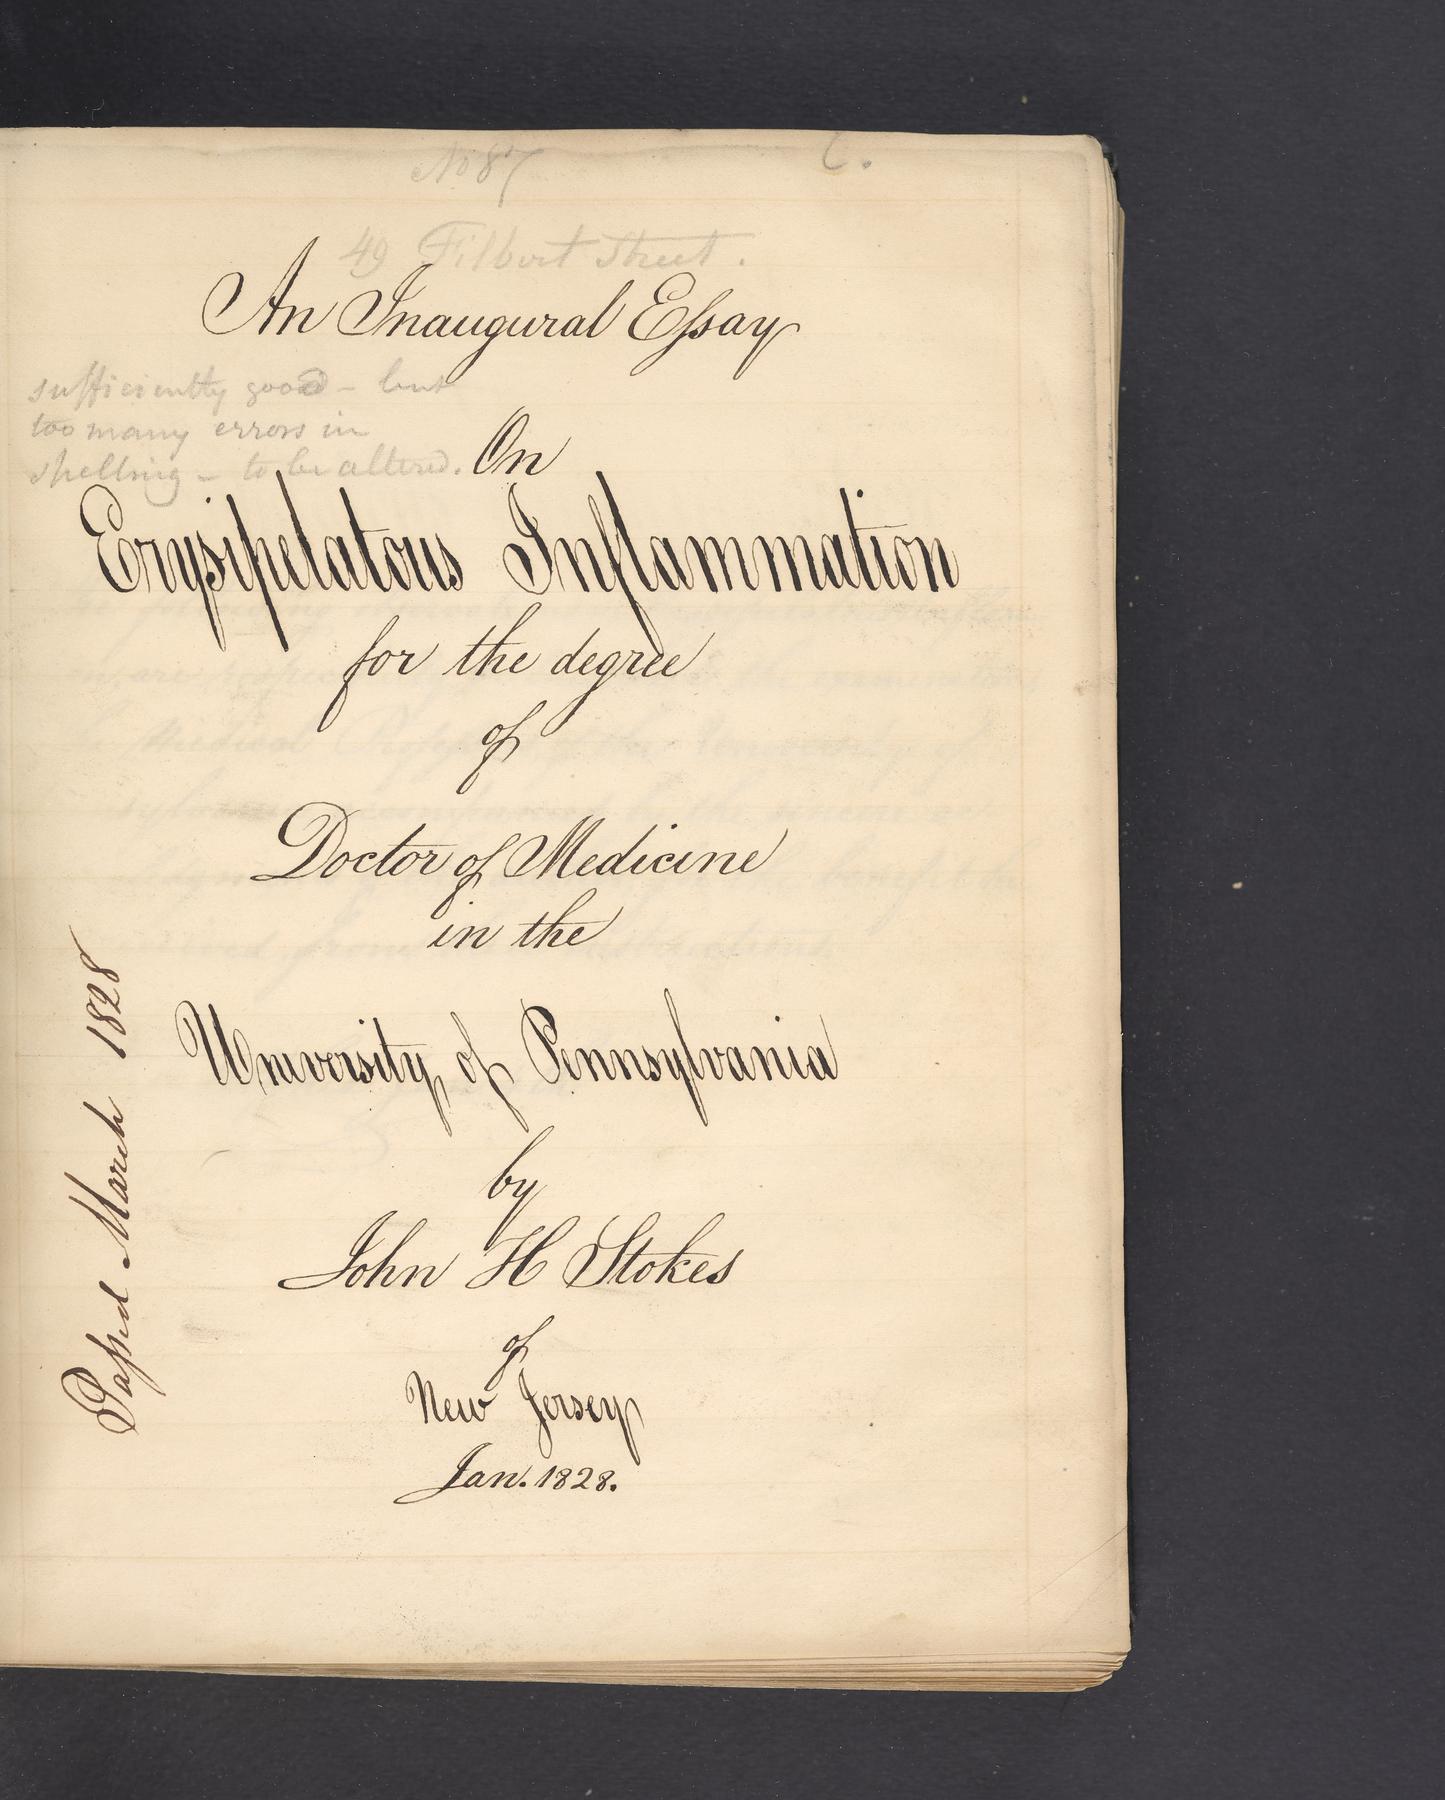 No 87
C.
49 Filbert Street.
An Inaugural Eſsay
sufficiently good – but
too many errors in
spelling – to be altered.
On
Erysipelatous Inflammation
for the degree
of
Doctor of Medicine
in the
University of Pennsylvania
by
John H Stokes
of
New Jersey
Jan. 1828.
Paſsed March 1828